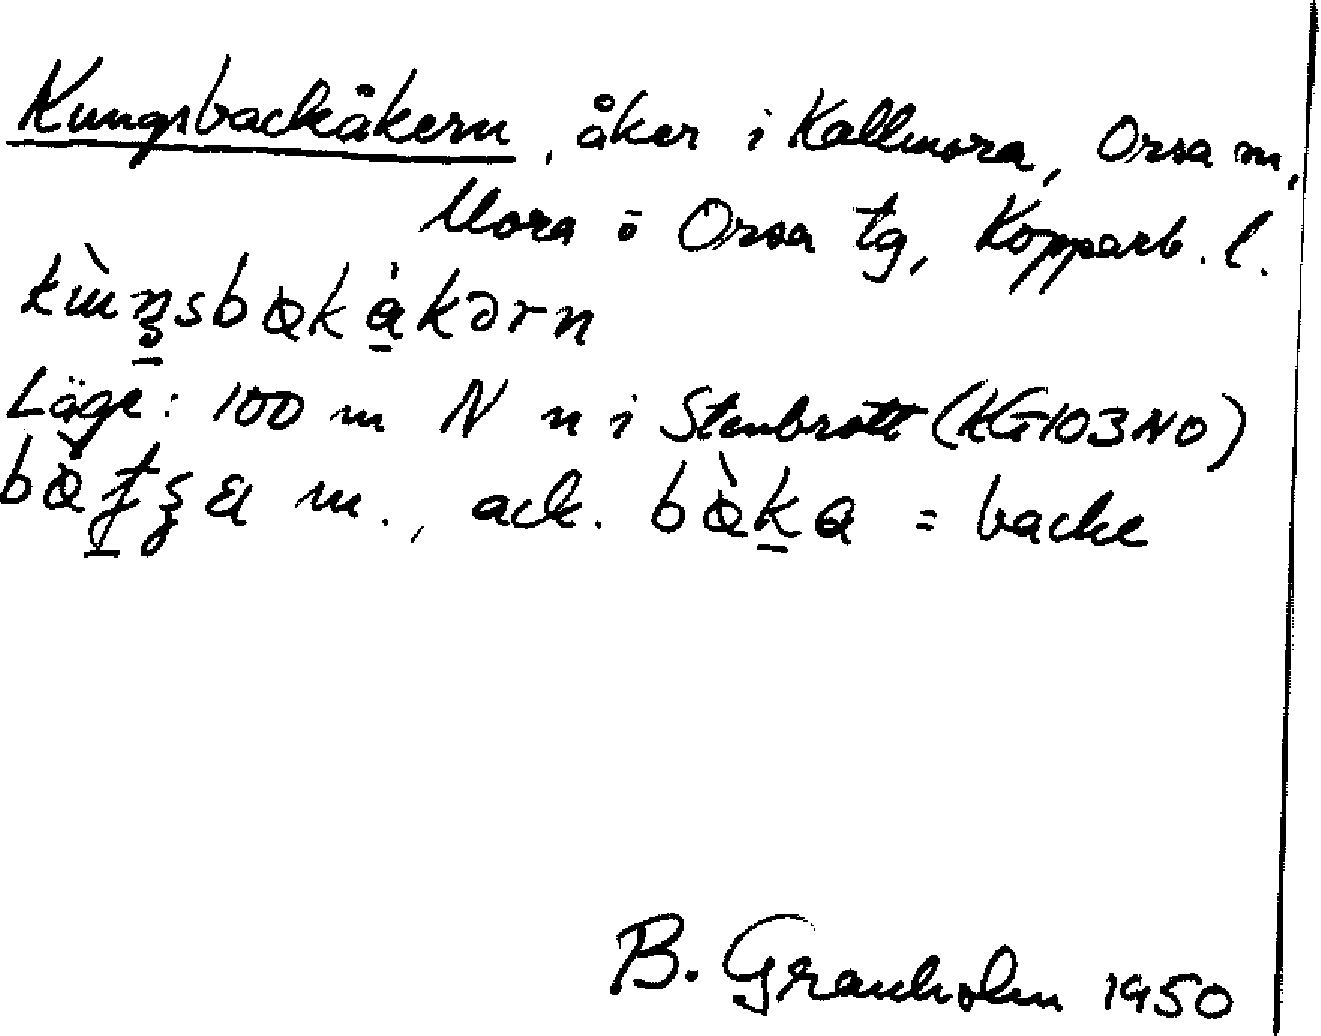 Kungsbackåkern, åker i Kallmora, Orsa sn,
Mora o Orsa tg, Kopparb. l.
Läge: 100 m N n i Stenbrott (KG103NO)
m., ack. bàka = backe
B. Granholm 1950